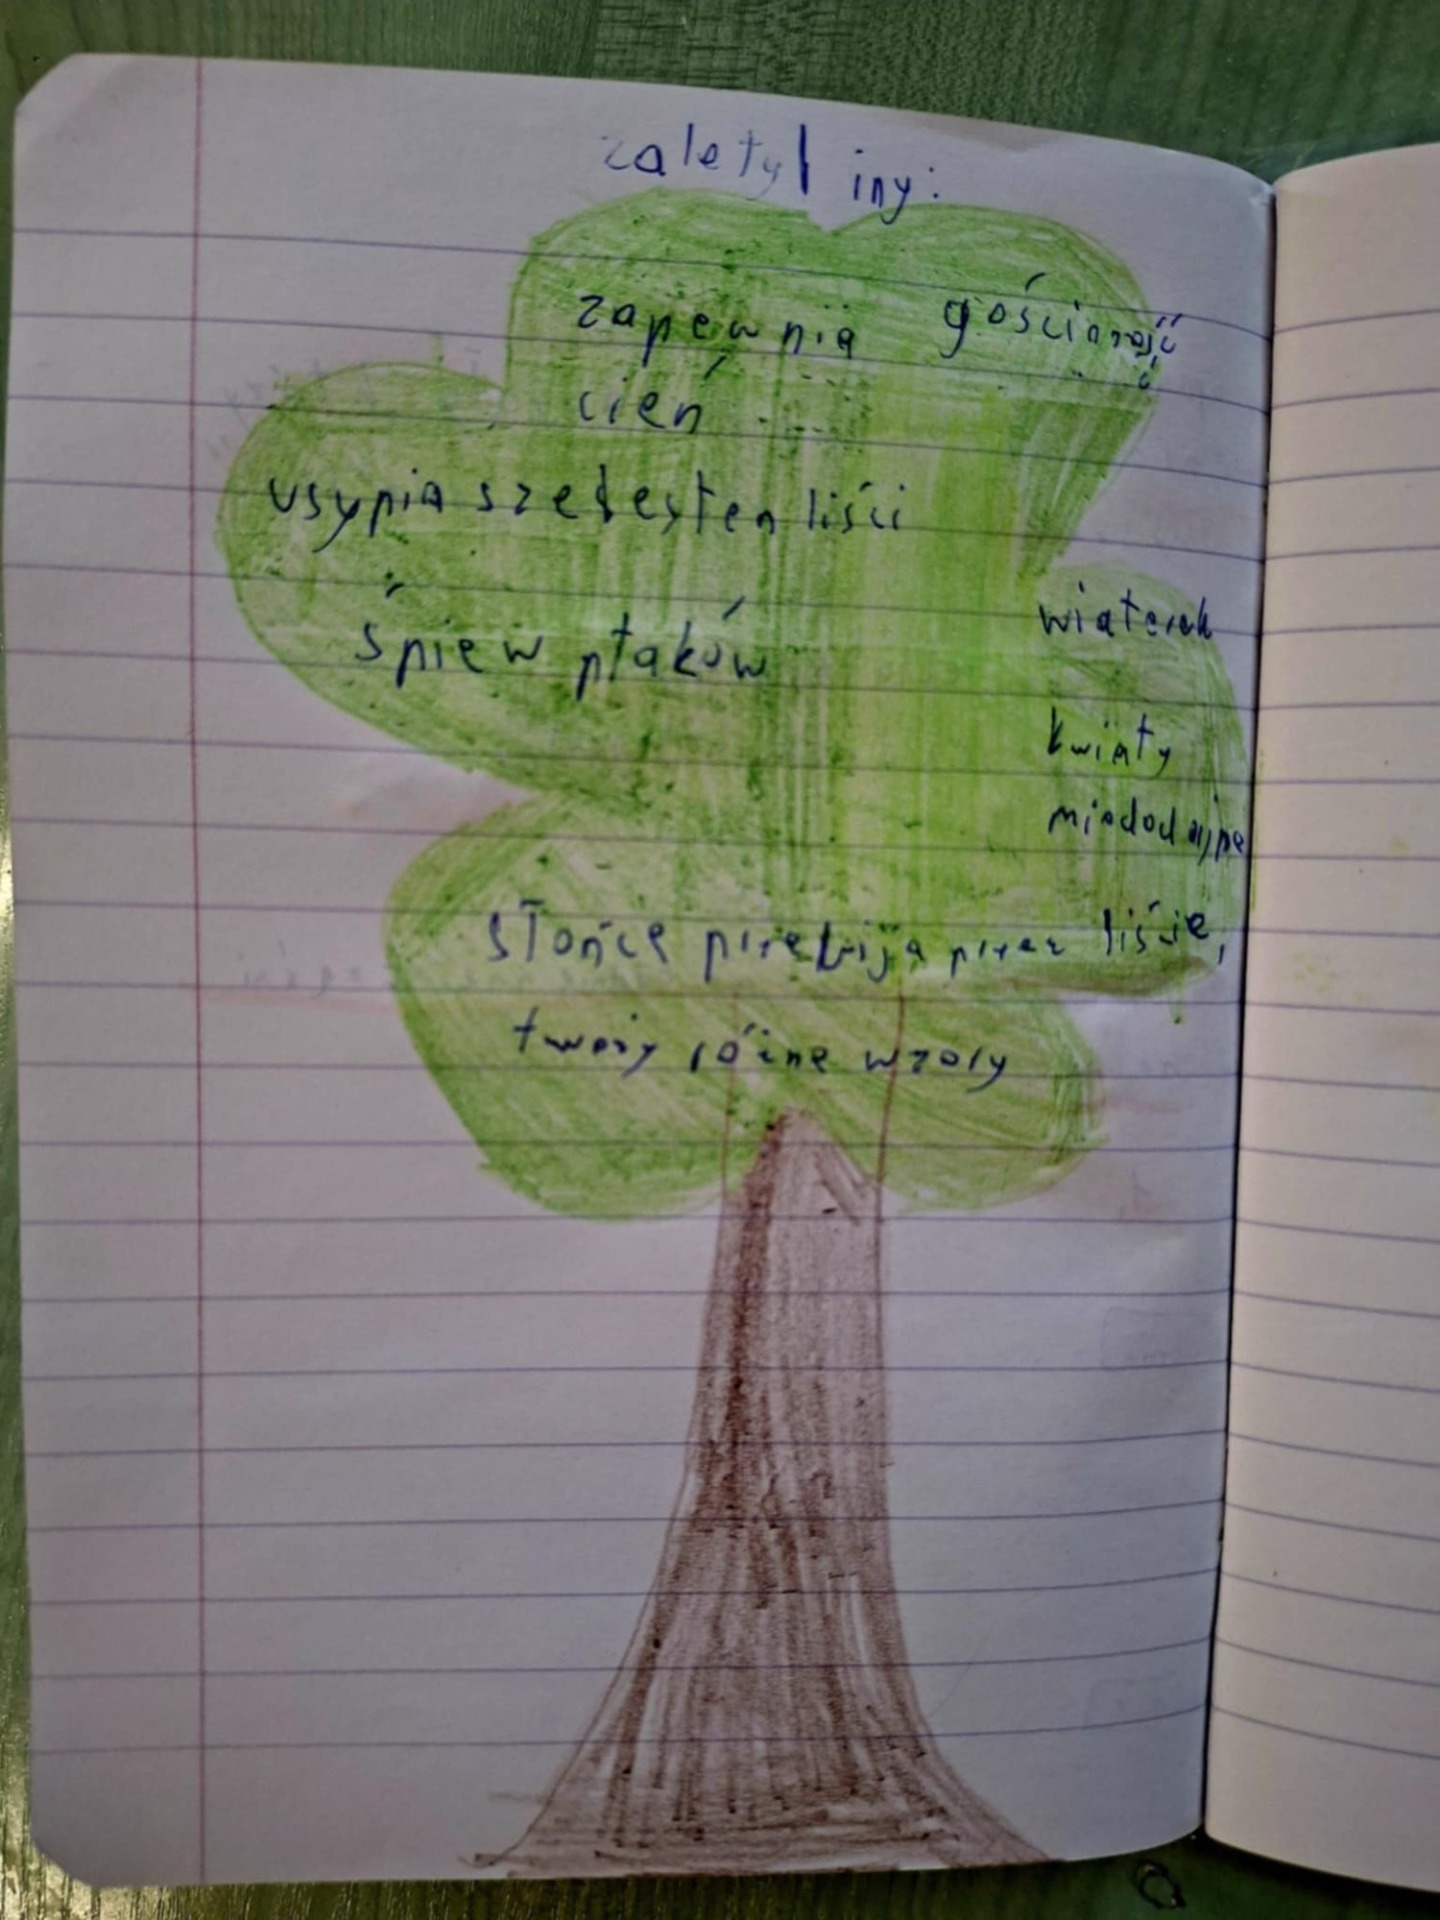 zalety liny:
zapewnia gościnność
cień
usypia szelestem liści
śpiew ptaków
wiaterek
kwiaty
miododajne
słońce przebija przez liście,
tworzy różne wzory